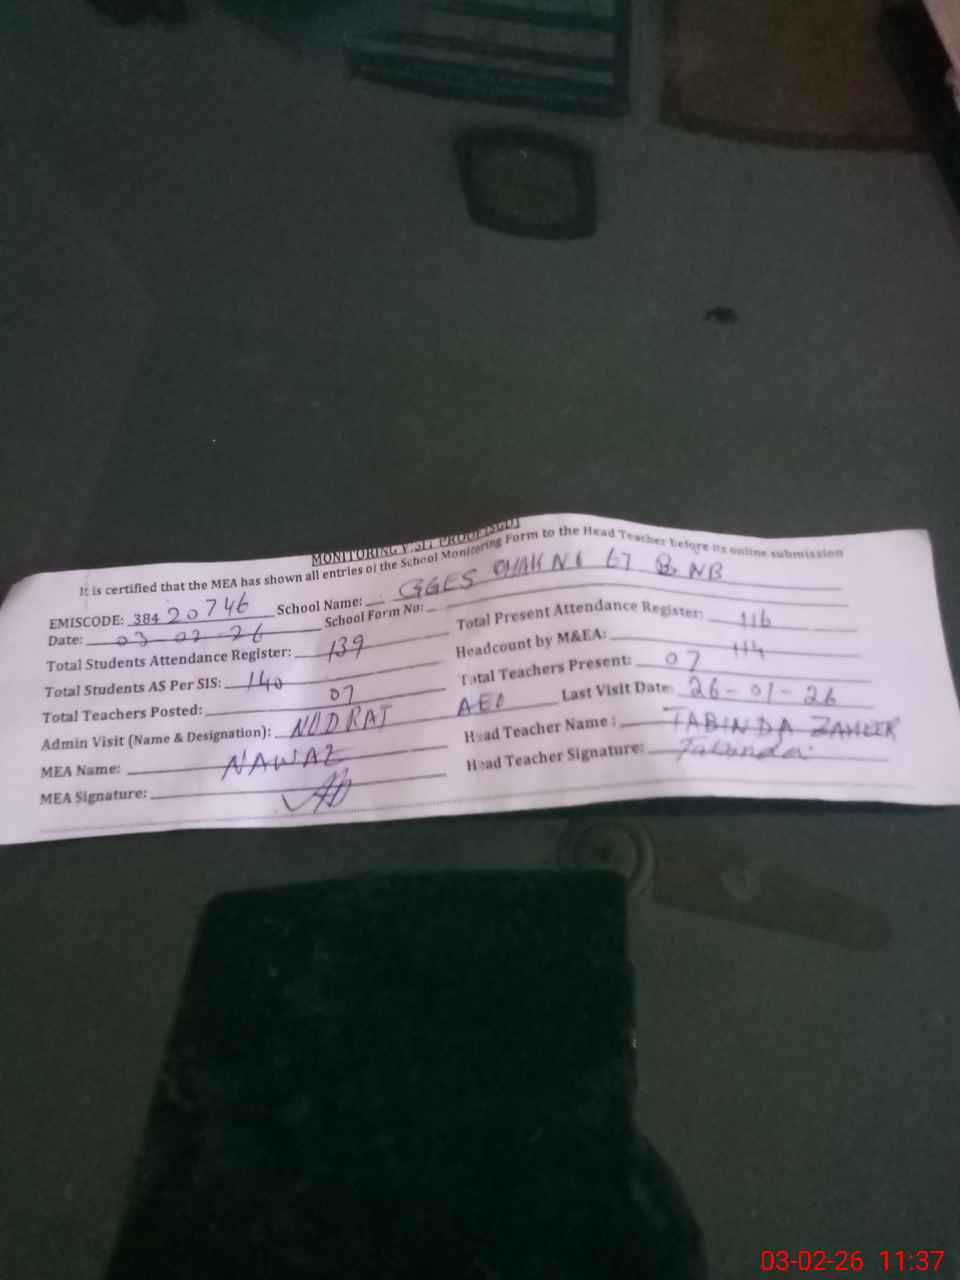 MONITORING VISIT PROOF [SGD]
It is certified that the MEA has shown all entries of the School Monitoring Form to the Head Teacher before its online submission
EMISCODE: 38420746 School Name: GGES CHAK NO 67 B NB
Date: 03-02-26 School Form No:
Total Students Attendance Register: 139 Total Present Attendance Register: 116
Total Students AS Per SIS: 140 Headcount by M&EA: 114
Total Teachers Posted: 07 Total Teachers Present: 07
Admin Visit (Name & Designation): NUDRAT AEO Last Visit Date: 26-01-26
MEA Name: NAWAZ Head Teacher Name: TABINDA ZAHEER
MEA Signature: Head Teacher Signature: Tabinda
03-02-26 11:37